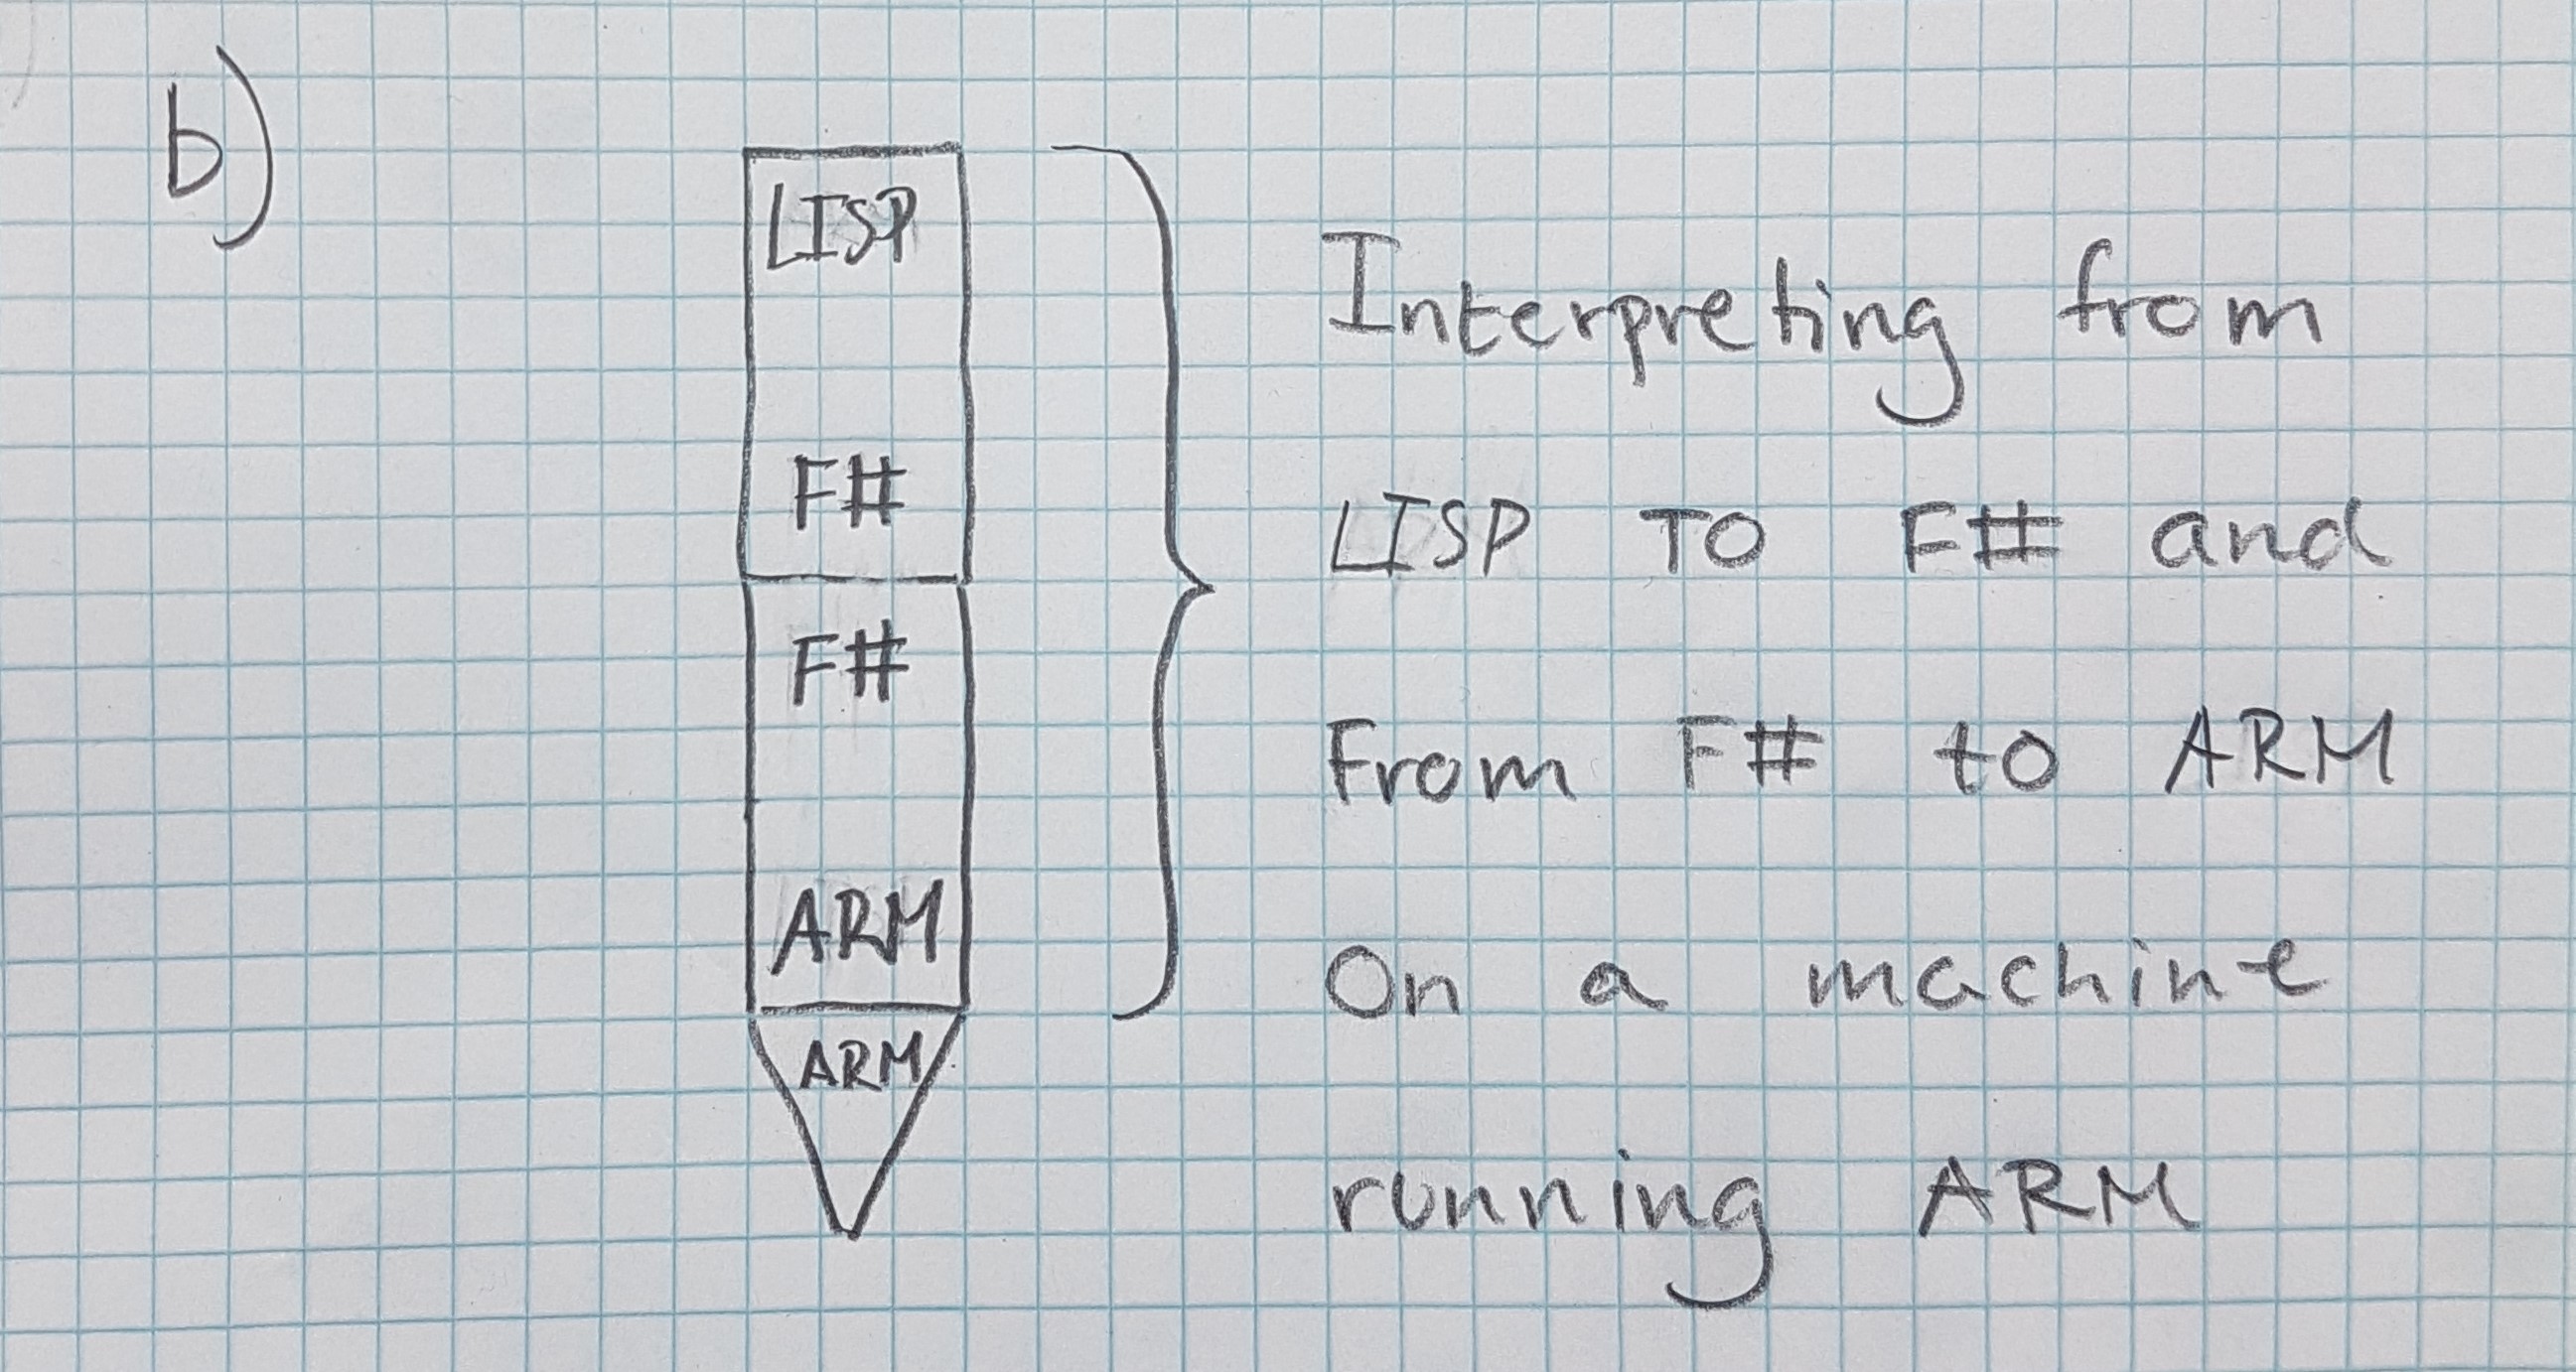 b)
LISP
F#
F#
ARM
ARM
Interpreting from
LISP TO F# and
From F# to ARM
On a machine
running ARM